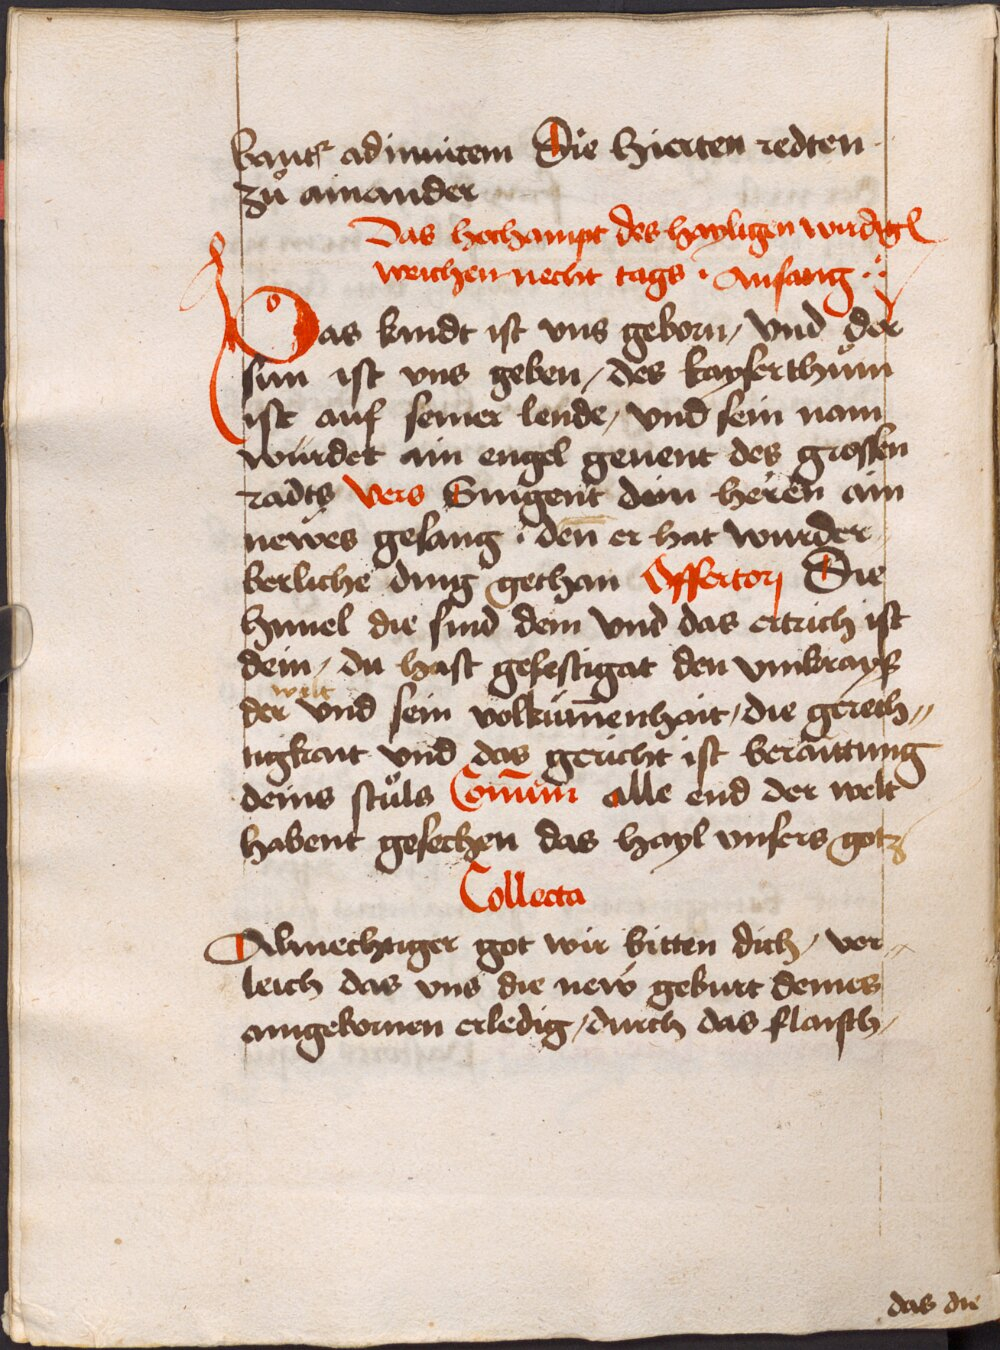 bantr adinuicem Die hierten redten
zů ainander
Das hochampt des hayligen wirdigl
weichen necht tags · Anfang
Das kindt ist vns geborn / vnd der
sun ist vns geben / des kayserthům
ist auf seiner lende / vnd sein nam
würdet ain engel genent des grossen
radts vers Singent dem heren ain
newes gesang · den̄ er hat wunder
berliche ding gethan Offertorj Die
himel die sind dein vnd das ertrich ist
dein / du hast gefestigat den vmbrayß
welt
der vnd sein volkūmenhait / die gerech〃
tigkait vnd das gericht ist beraittung
deins stůls Com̄un alle end der welt
habent gesechen das hayl vnsers gotz
Collecta
Almechtiger got wir bitten dich / ver〃
leich das vns die new geburt deines
aingebornen erledig / durch das flaisch /
das die